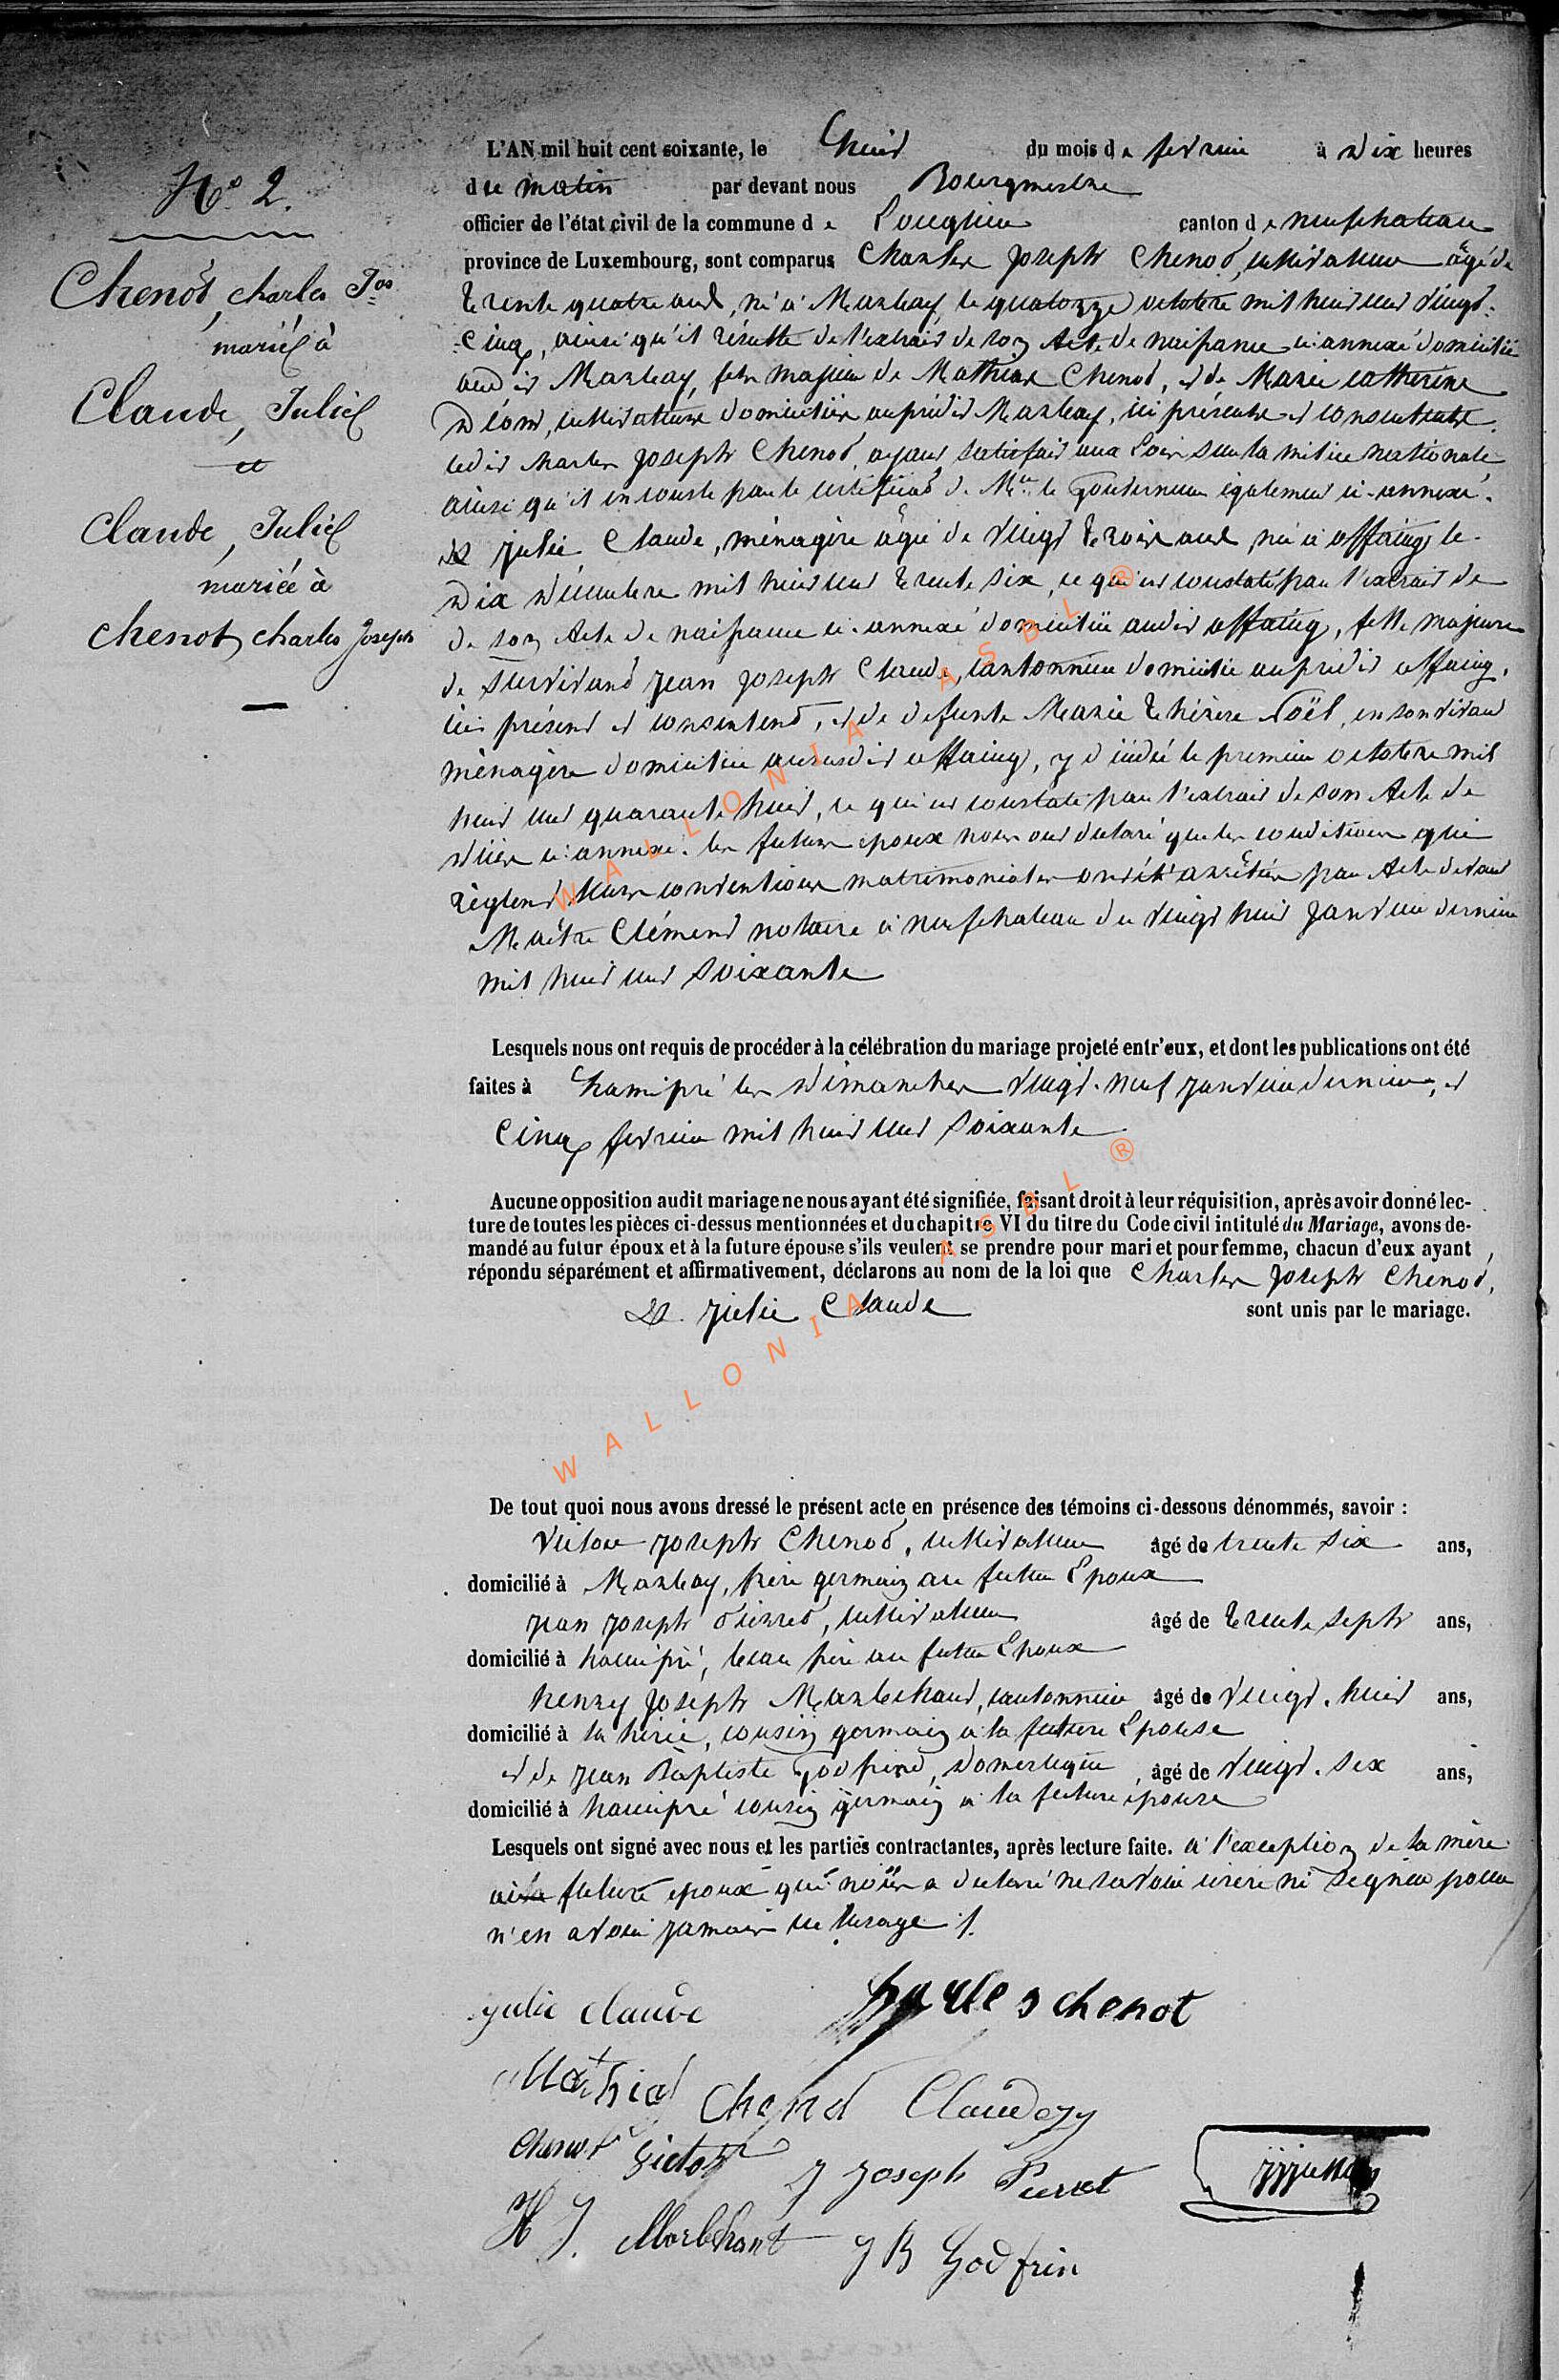 N° 2.
Chenot, charles Jos
mariés à
Claude, Julie
et
Claude, Julie
mariée à
chenot, charles Joseph
L'AN mil huit cent soixante, le huit du mois de fevrier à dix heures
du matin par devant nous Bourgmestre
officier de l'état civil de la commune de Longlier canton de neufchateau
province de Luxembourg, sont comparus Charles Joseph Chenot, cultivateur âgé de
trente quatre ans, né à Marbay, le quatorze octobre mil huit cent vingt-
cinq, ainsi qu'il résulte de l'extrait de son Acte de naissance ci-annexé domicilié
audit Marbay, fils majeur de Mathias Chenot, et de Marie catherine
cultivateurs domiciliés au prédit Marbay, ici présents et consentants.
ledit charles Joseph Chenot, ayant satisfait aux Lois sur la milice nationale
ainsi qu'il en conste par le certificat de Mr le Gouverneur également ci-annexé.
Et Julie Claude, ménagère âgée de vingt trois ans, née à offaing le
dix décembre mil huit cent trente six, ce qui est constaté par l'extrait de
de son Acte de naissance ci-annexé domiciliée audit offaing, fille majeure
de survivant Jean Joseph Claude, cantonnier domicilié au prédit offaing,
ici présent et consentent, et de defunte Marie thérèse Noël, en son vivant
ménagère domiciliée au susdit offaing, y décédée le premier octobre mil
huit cent quarante huit, ce qui est constaté par l'extrait de son Acte de
décès ci-annexé. les futurs epoux nous ont déclaré que les conditions qui
règlent leurs conventions matrimoniales ont été arrêtées par Acte devant
Maître Clément notaire à neufchateau du vingt huit janvier dernier
mil huit cent soixante
Lesquels nous ont requis de procéder à la célébration du mariage projeté entr'eux, et dont les publications ont été
faites à hamipré les dimanches vingt-neuf janvier dernier, et
cinq fevrier mil huit cent soixante
Aucune opposition audit mariage ne nous ayant été signifiée, faisant droit à leur réquisition, après avoir donné lec-
ture de toutes les pièces ci-dessus mentionnées et du chapitre VI du titre du Code civil intitulé du Mariage, avons de-
mandé au futur époux et à la future épouse s'ils veulent se prendre pour mari et pour femme, chacun d'eux ayant
répondu séparément et affirmativement, déclarons au nom de la loi que Charles Joseph Chenot,
Et Julie Claude sont unis par le mariage.
De tout quoi nous avons dressé le présent acte en présence des témoins ci-dessous dénommés, savoir :
Victor Joseph Chenot, cultivateur âgé de trente six ans,
domicilié à Marbay, frère germain au futur Epoux
Jean Joseph Pierret, cultivateur âgé de trente sept ans,
domicilié à hamipré, beau frère au futur Epoux
henry Joseph Marbehant, cantonnier âgé de vingt-huit ans,
domicilié à la hérie, cousin germain à la future Epouse
et de Jean Baptiste Godfrind, domestique, âgé de vingt-six ans,
domicilié à hamipré cousin germain à la future épouse
Lesquels ont signé avec nous et les parties contractantes, après lecture faite. à l'exception de la mère
future epoux qui nous a déclaré ne savoir écrire ni signer pour
n'en avoir jamais eu l'usage
julie claude
charles chenot
Mathias Chenot
Claude JJ
Chenot Victor
J Joseph Pierret
H J. Marbehant
J B Godfrin
WALLONIA ASBL ®
WALLONIA ASBL ®